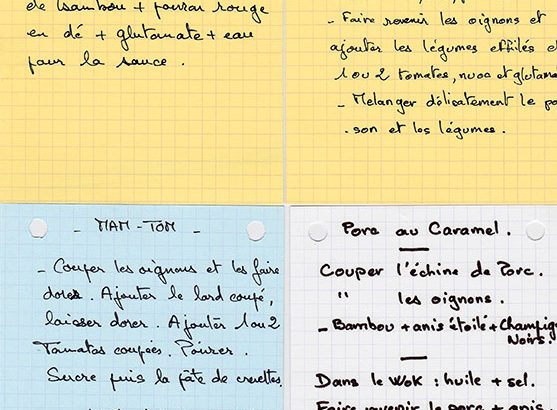 de bambou + poivron rouge
en dé + glutamate + eau
pour la sauce.
- Faire revenir les oignons et
ajouter les légumes effilés et
1 ou 2 tomates, nuoc et glutama
- Melanger délicatement le po
.son et les légumes.
- MAM - TOM -
- Couper les oignons et les faire
dorer. Ajouter le lard coupé,
laisser dorer. Ajouter 1 ou 2
Tomates coupées. Poivrer.
Sucre puis la pâte de crevettes.
Porc au Caramel.
Couper l'échine de Porc.
" les oignons.
- Bambou + anis étoilé + Champig
Noirs.
Dans le Wok : huile + sel.
Faire revenir le porc + anis